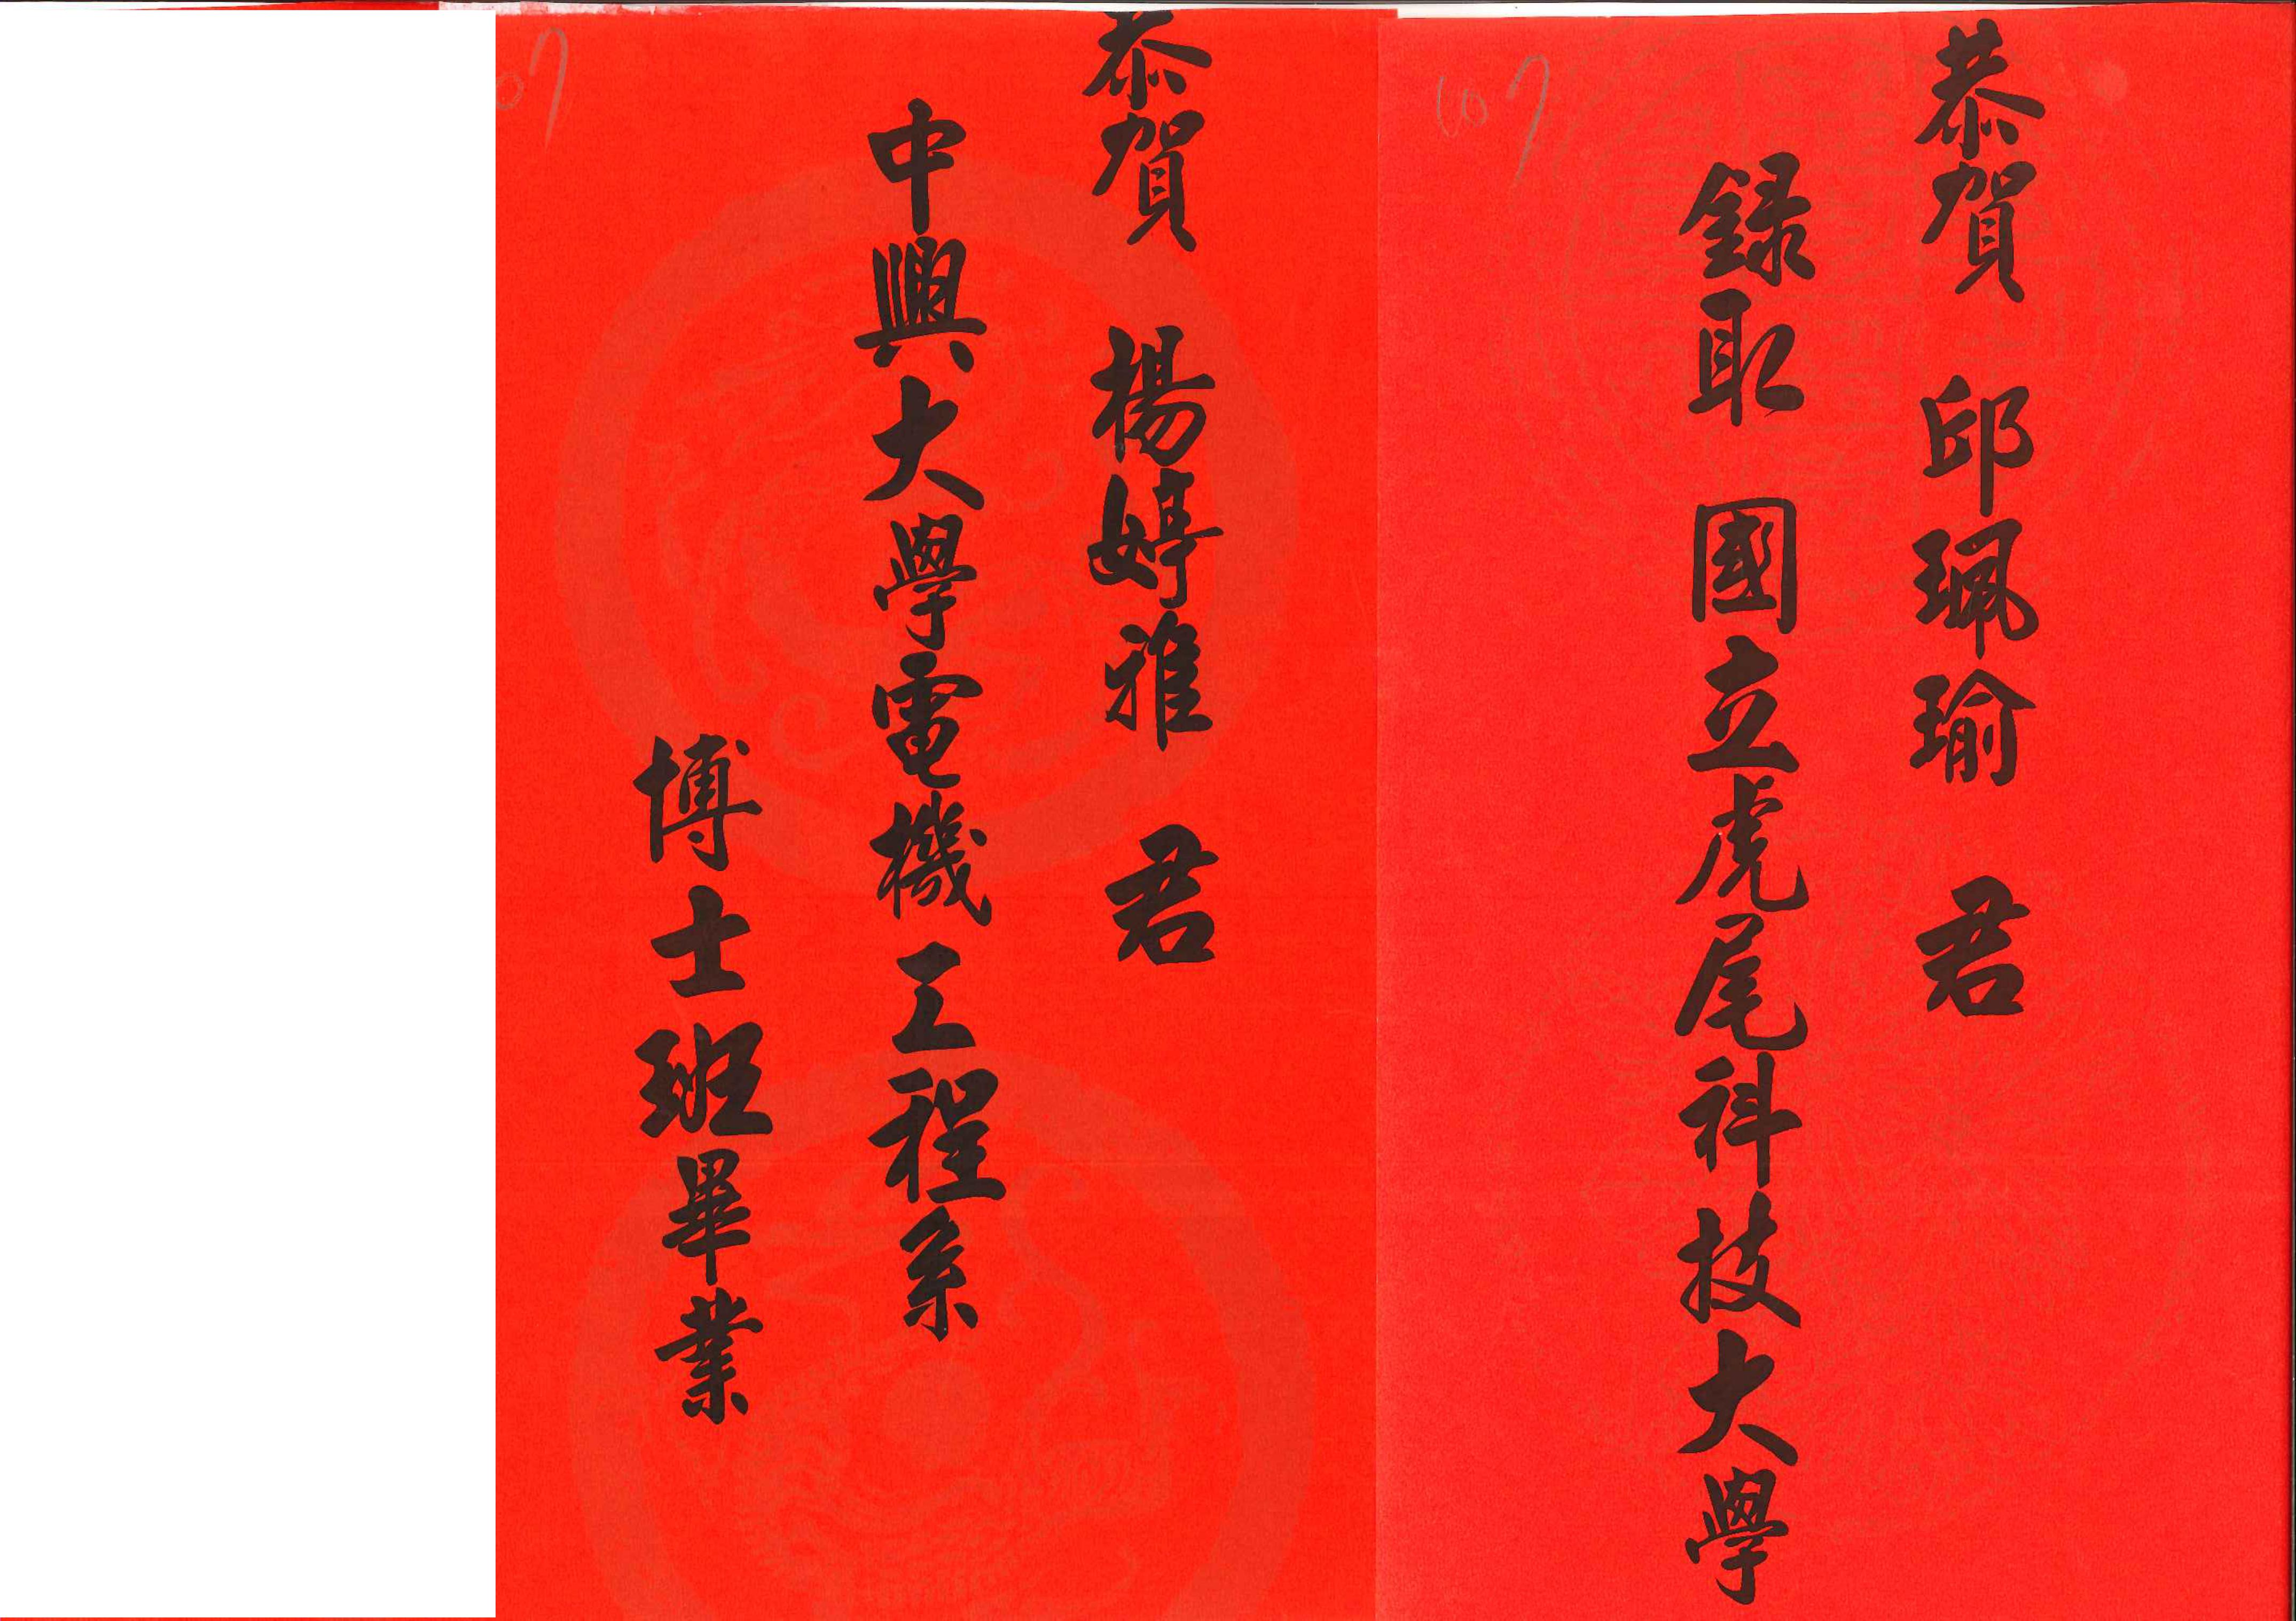 107
恭賀 邱珮瑜 君
錄取 國立虎尾科技大學
07
恭賀 楊婷雅 君
中興大學電機工程系
博士班畢業